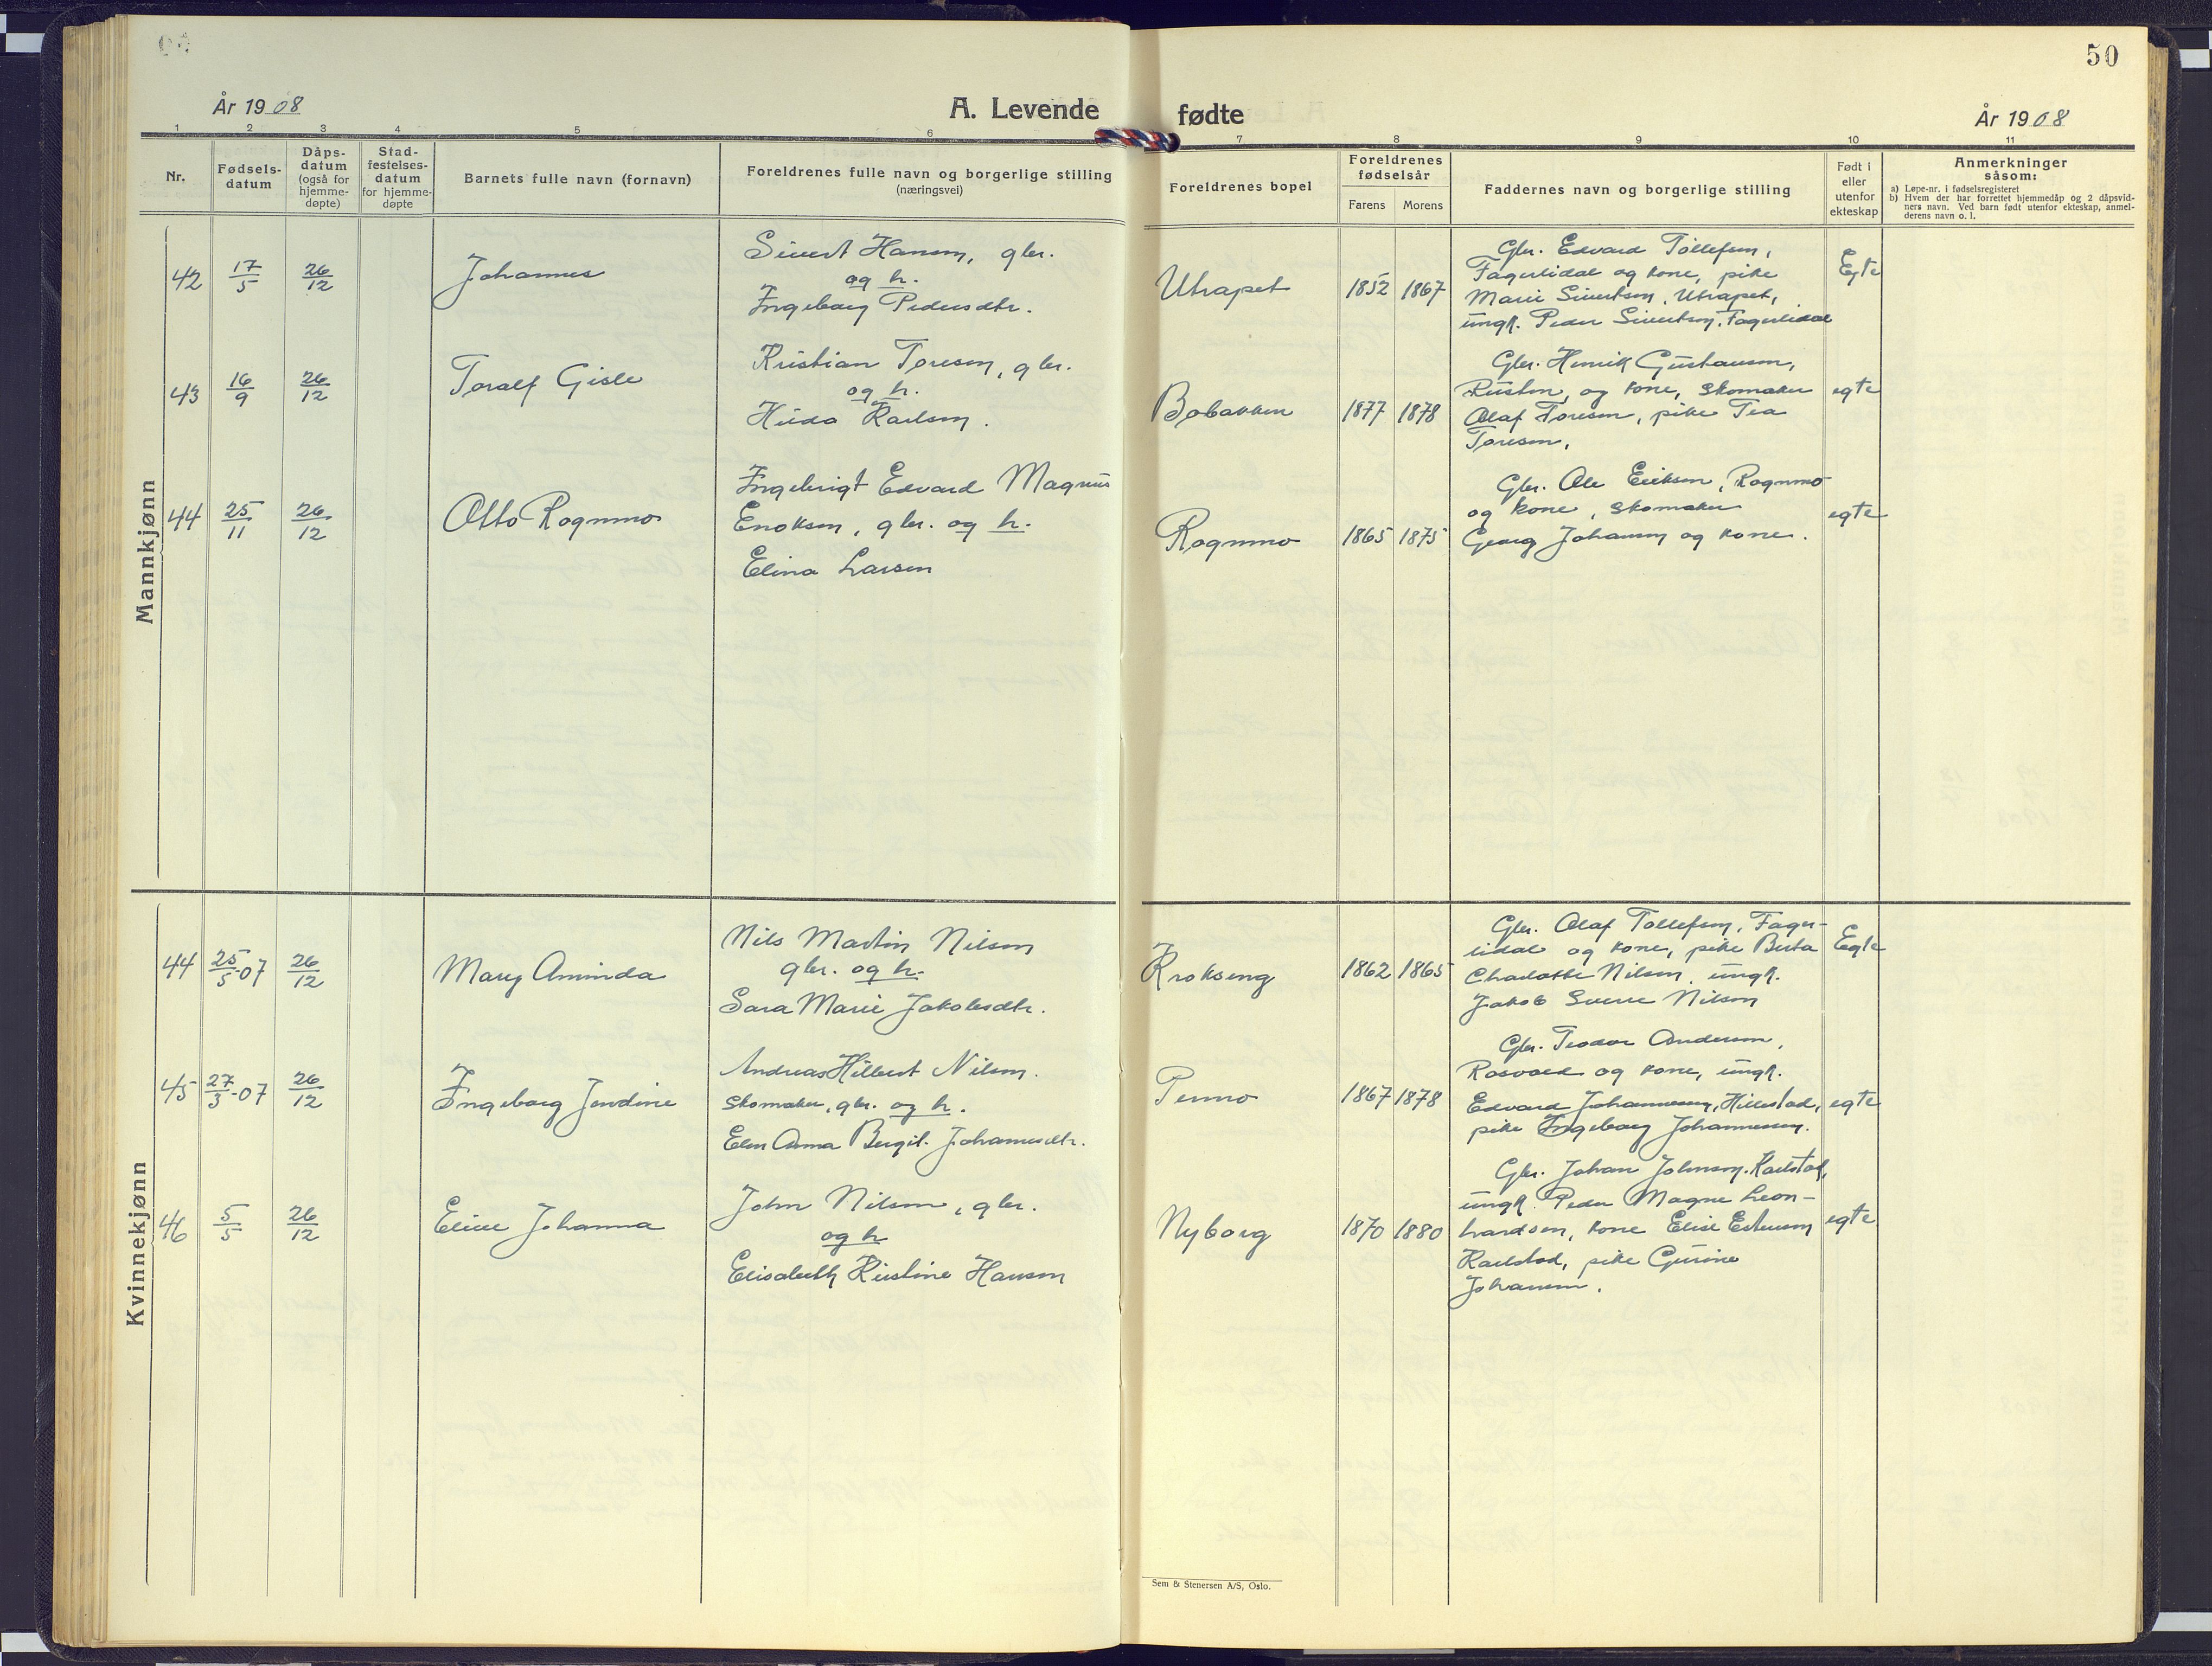 50
År 1908
A. Levende
fødte
År 1908
1 2 3 4 5 6 7 8 9 10 11
Nr.
Fødsels-
datum
Dåps-
datum
(også for
hjemme-
døpte)
Stad-
festelses-
datum
for hjemme-
døpte
Barnets fulle navn (fornavn)
Foreldrenes fulle navn og borgerlige stilling
(næringsvei)
Foreldrenes bopel
Foreldrenes
fødselsår
Farens Morens
Faddernes navn og borgerlige stilling
Født i
eller
utenfor
ekteskap
Anmerkninger
såsom:
a) Løpe-nr. i fødselsregisteret
b) Hvem der har forrettet hjemmedåp og 2 dåpsvid-
ners navn. Ved barn født utenfor ekteskap, anmel-
derens navn o. l.
Mannkjønn
42 17/5 26/12 Johannes
Sivert Hansen, gbr.
og h.
Ingeborg Pedersdtr.
Utrapet 1852 1867
Gbr. Edvard Tollefsen,
Fagerlidal og kone, pike
Marie Sivertsen, Utrapet,
ungk. Peder Sivertsen, Fagerlidal
Egte
43 16/9 26/12 Toralf Gisle
Kristian Toresen, gbr.
og h.
Hilda Karlsen.
Bobakken 1877 1878
Gbr. Henrik Gustavsen,
og kone, skomaker
Olaf Toresen, pike Tea
Toresen.
egte
44 25/11 26/12 Otto Rognmo
Ingebrigt Edvard Magnus
Enoksen, gbr. og h.
Elina Larsen
Rognmo 1865 1875
Gbr. Ole Eriksen, Rognmo
og kone, skomaker
Georg Johansen og kone.
egte
Kvinnekjønn
44 25/5-07 26/12 Mary Aminda
Nils Martin Nilsen
gbr. og h.
Sara Marie Jakobsdtr.
Krokseng 1862 1865
Gbr. Olaf Tollefsen, Fager-
lidal og kone, pike Berta
Charlotte Nilsen, ungk.
Jakob Sverre Nilsen
Egte
45 27/3-07 26/12 Ingeborg Jendine
Andreas Hilbert Nilsen.
skomaker, gbr. og h.
Elen Anna Bergit. Johannesdtr.
Penmo 1867 1878
Gbr. Teodor Andersen,
Rosvold og kone, ungk.
Edvard Johannessen, Hillestad,
pike Ingeborg Johannessen.
egte
46 5/5 26/12 Elise Johanna
John Nilsen, gbr.
og h
Elisabeth Kristine Hansen
Nyborg 1870 1880
Gbr. Johan Johnsen. Karlstad,
ungk. Peder Magne Leon-
hardsen, kone Elise Estensen
Karlstad, pike Gurine
Johansen.
egte
Sem & Stenersen A/S, Oslo.